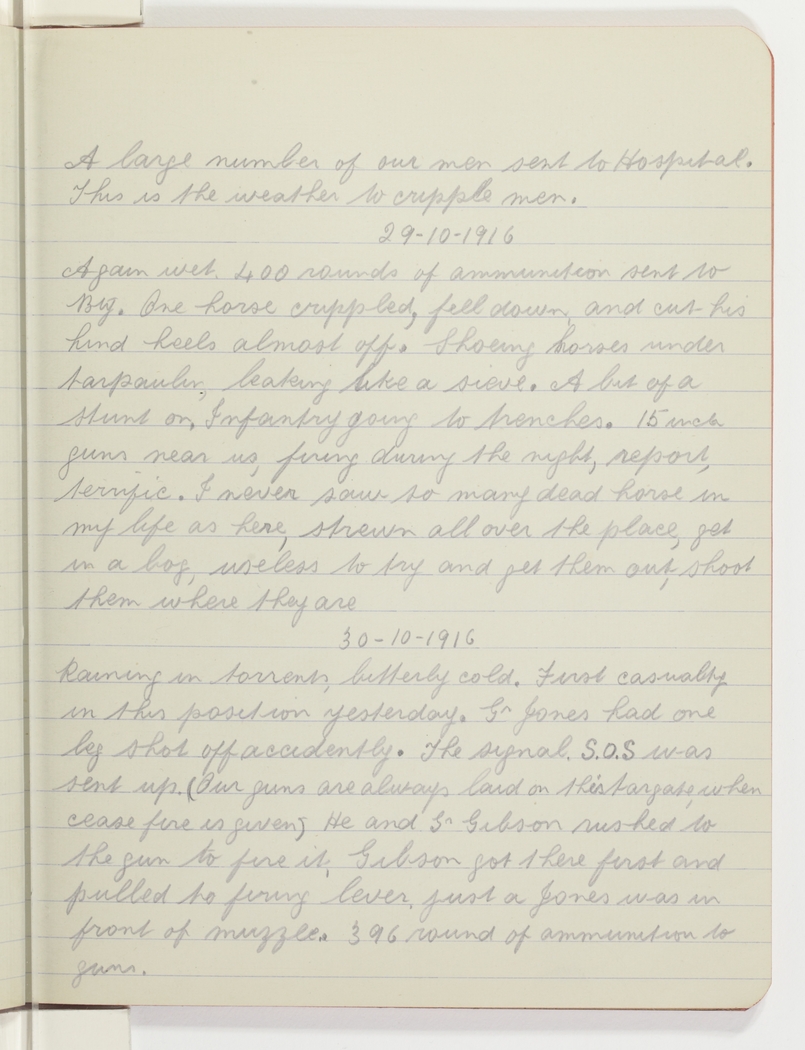 A large number of our men sent to Hospital.
This is the weather to cripple men.
29-10-1916
Again wet. 400 rounds of ammunition sent to
Bty. One horse crippled, fell down, and cut his
hind heels almost off. Shoeing horses under
tarpaulin, leaking like a sieve. A bit of a
stunt on, Infantry going to trenches. 15 inch
guns near us, firing during the night, report,
terrific. I never saw so many dead horse in
my life as here, strewn all over the place, get
in a bog, useless to try and get them out, shoot
them where they are
30-10-1916
Raining in torrents, bitterly cold. First casualty
in this position yesterday. Gr Jones had one
leg shot off accidently. The signal. S.O.S was
sent up. (Our guns are always laid on this targate, when
cease fire is given) He and Gr Gibson rushed to
the gun to fire it, Gibson got there first and
pulled to firing lever, just a Jones was in
front of muzzle. 396 round of ammunition to
guns.